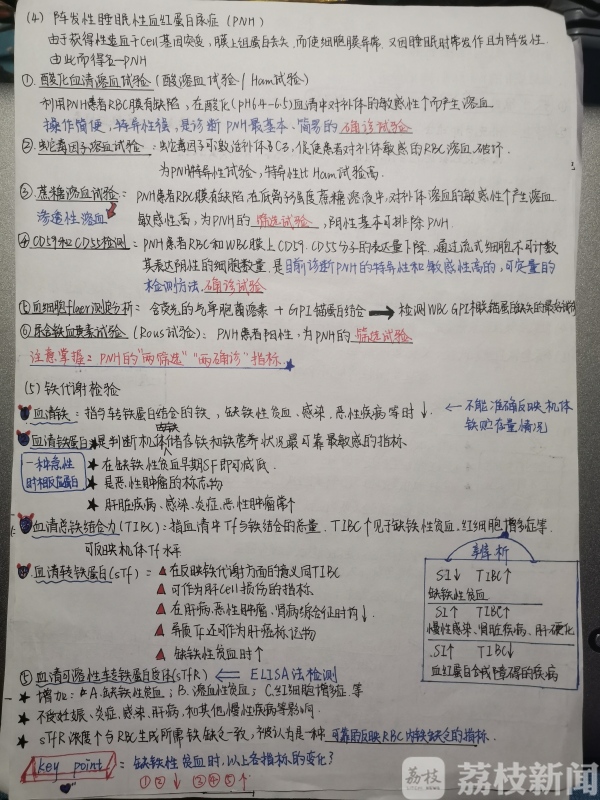 (4) 阵发性睡眠性血红蛋白尿症 (PNH)
由于获得性造血干Cell基因突变,膜上组蛋白丢失,而使细胞膜异常,又因睡眠时常发作且为阵发性.
由此而得名—PNH
① 酸化血清溶血试验 (酸溶血试验/Ham试验)
利用PNH患者RBC膜有缺陷,在酸化(pH6.4-6.5)血清中对补体的敏感性↑而产生溶血
操作简便,特异性强,是诊断PNH最基本.简易的确诊试验
② 蛇毒因子溶血试验:蛇毒因子可激活补体系C3,促使患者对补体敏感的RBC溶血.破坏.
为PNH特异性试验,特异性比Ham试验高.
③ 蔗糖溶血试验: PNH患者RBC膜有缺陷,在低离子强度蔗糖溶液中,对补体溶血的敏感性↑产生溶血
渗透性溶血 敏感性高,为PNH的筛选试验,阴性基本可排除PNH.
④ CD59和CD55检测: PNH患者RBC和WBC膜上CD59.CD55分子的表达量下降.通过流式细胞术可计数
其表达阴性的细胞数量.是目前诊断PNH的特异性和敏感性高的,可定量的
检测方法.确诊试验
⑤ 血细胞flaer测定分析: 含荧光的气单胞菌溶素 + GPI锚蛋白结合 → 检测WBC GPI相关锚蛋白缺失的最好试验
⑥ 尿含铁血黄素试验 (Rous试验): PNH患者阳性,为PNH的筛选试验
注意掌握: PNH的"两筛选""两确诊"指标.
(5) 铁代谢检验
血清铁:指与转铁蛋白结合的铁,缺铁性贫血.感染.恶性疾病等时↓. ← 不能准确反映机体
铁贮存量情况
血清铁蛋白:是判断机体储存铁和铁营养状况最可靠最敏感的指标
一种急性 ★ 在缺铁性贫血早期SF即可减低.
时相反应蛋白 ★ 是恶性肿瘤的标志物
★ 肝脏疾病、感染、炎症.恶性肿瘤常↑
血清总铁结合力(TIBC):指血清中Tf与铁结合的总量. TIBC↑见于缺铁性贫血.红细胞增多症等.
可反映机体Tf水平
血清转铁蛋白(sTf): ▲在反映铁代谢方面的意义同TIBC
▲ 可作为肝Cell损伤的指标
▲ 在肝病.恶性肿瘤、肾病综合征时均↓.
▲ 异质Tf还可作为肝癌标记物
▲ 缺铁性贫血时↑
辨析
SI↓ TIBC↑
缺铁性贫血
SI↑ TIBC↑
慢性感染、肾脏疾病、肝硬化
SI↑ TIBC↓
血红蛋白合成障碍的疾病
⑤ 血清可溶性转铁蛋白受体(sTfR) ⇐ ELISA法检测
★ 增加: A.缺铁性贫血; B.溶血性贫血; C.红细胞增多症等
★ 不受妊娠、炎症.感染.肝病.和其他慢性疾病等影响.
★ sTfR浓度↑与RBC生成所需铁缺乏一致,被认为是一种可靠的反映RBC内铁缺乏的指标.
key point: 缺铁性贫血时,以上各指标的变化?
①②↓ ③④⑤↑
荔枝
荔枝新闻